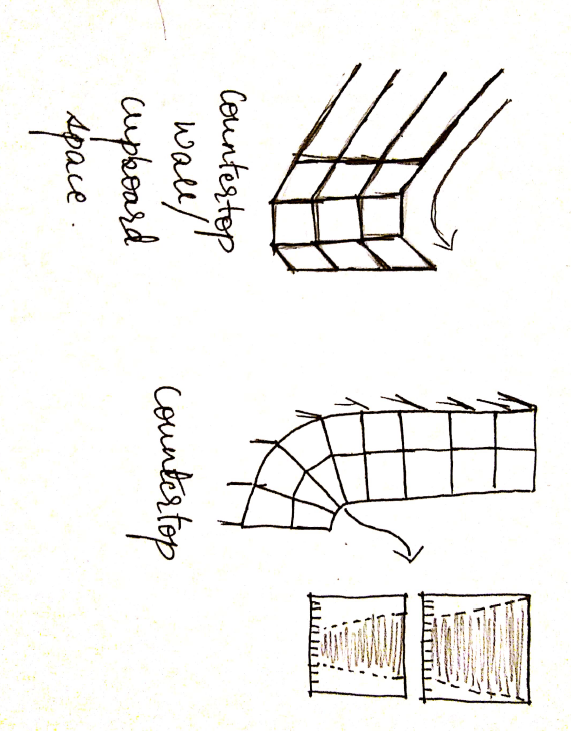 Countertop
wall/
cupboard
space.
Countertop